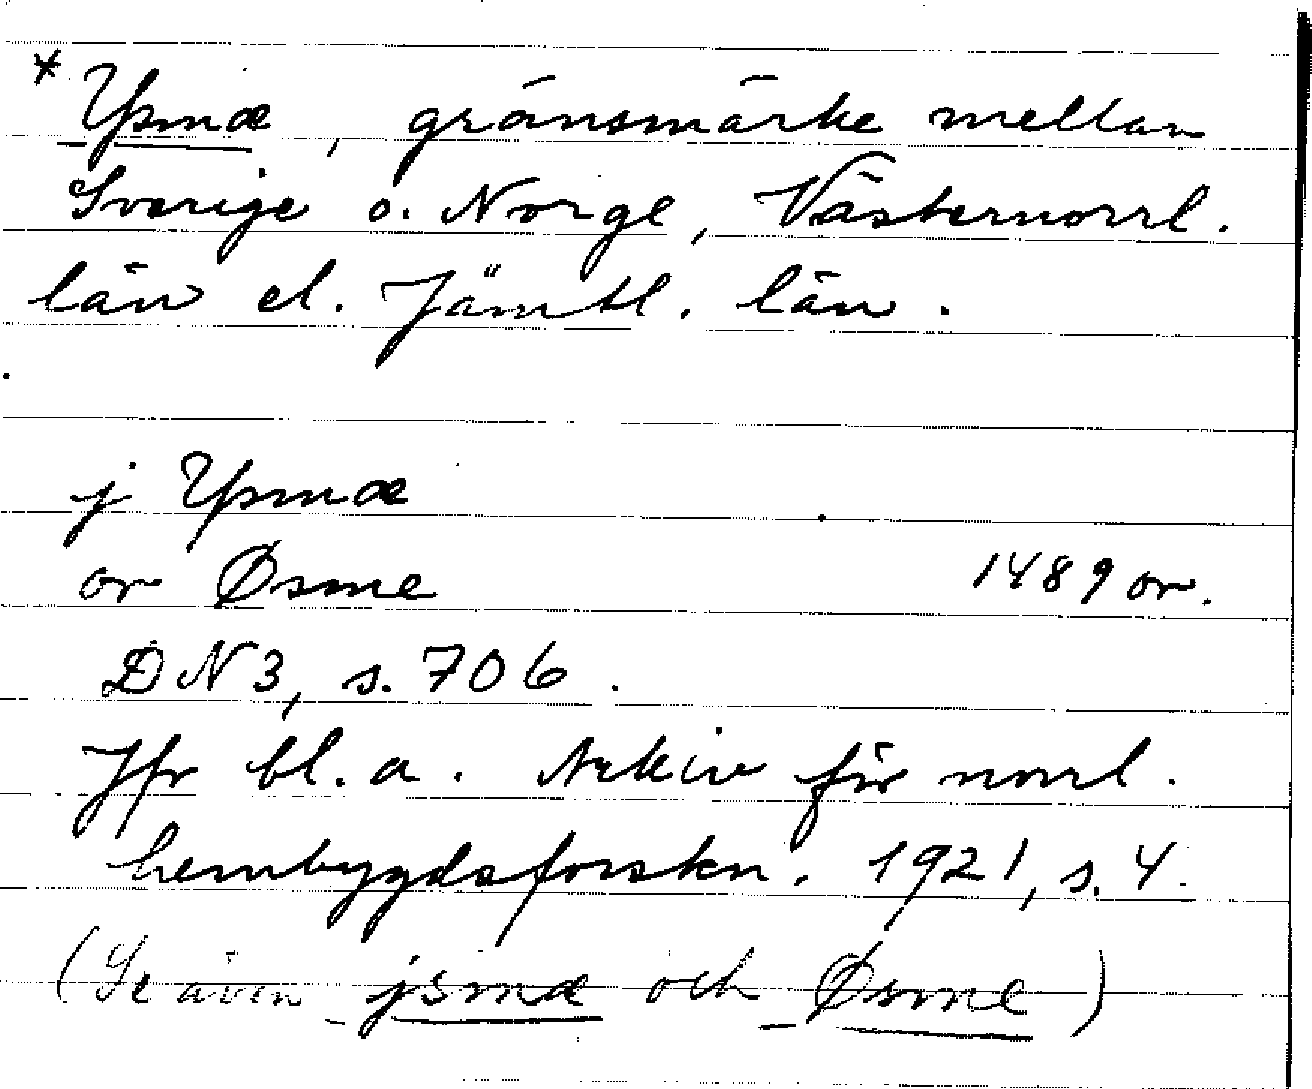 * Ypmæ, gränsmärke mellan
Sverige o. Norge, Västernorrl.
län el. Jämtl. län.
j Ypmæ
or Øsme 1489 or.
DN 3, s. 706.
Jfr bl. a. Arkiv för norrl.
hembygdsforskn. 1921, s. 4.
(Se även jsmæ och Øsme)